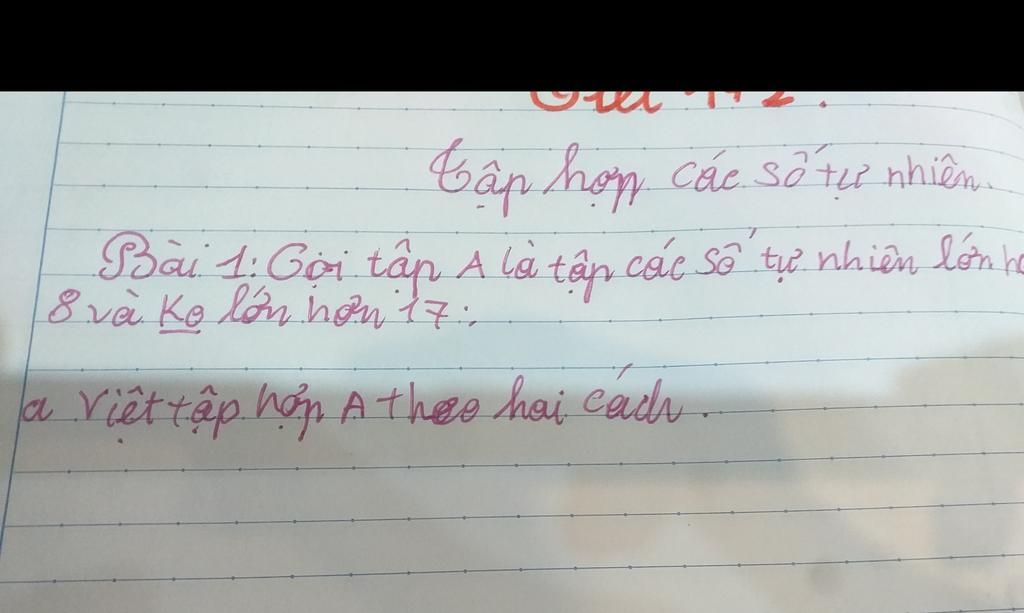 Tập hợp các số tự nhiên.
Bài 1: Gọi tập A là tập các số tự nhiên lớn
8 và ko lớn hơn 17:
a Việt tập hợp A theo hai cách.